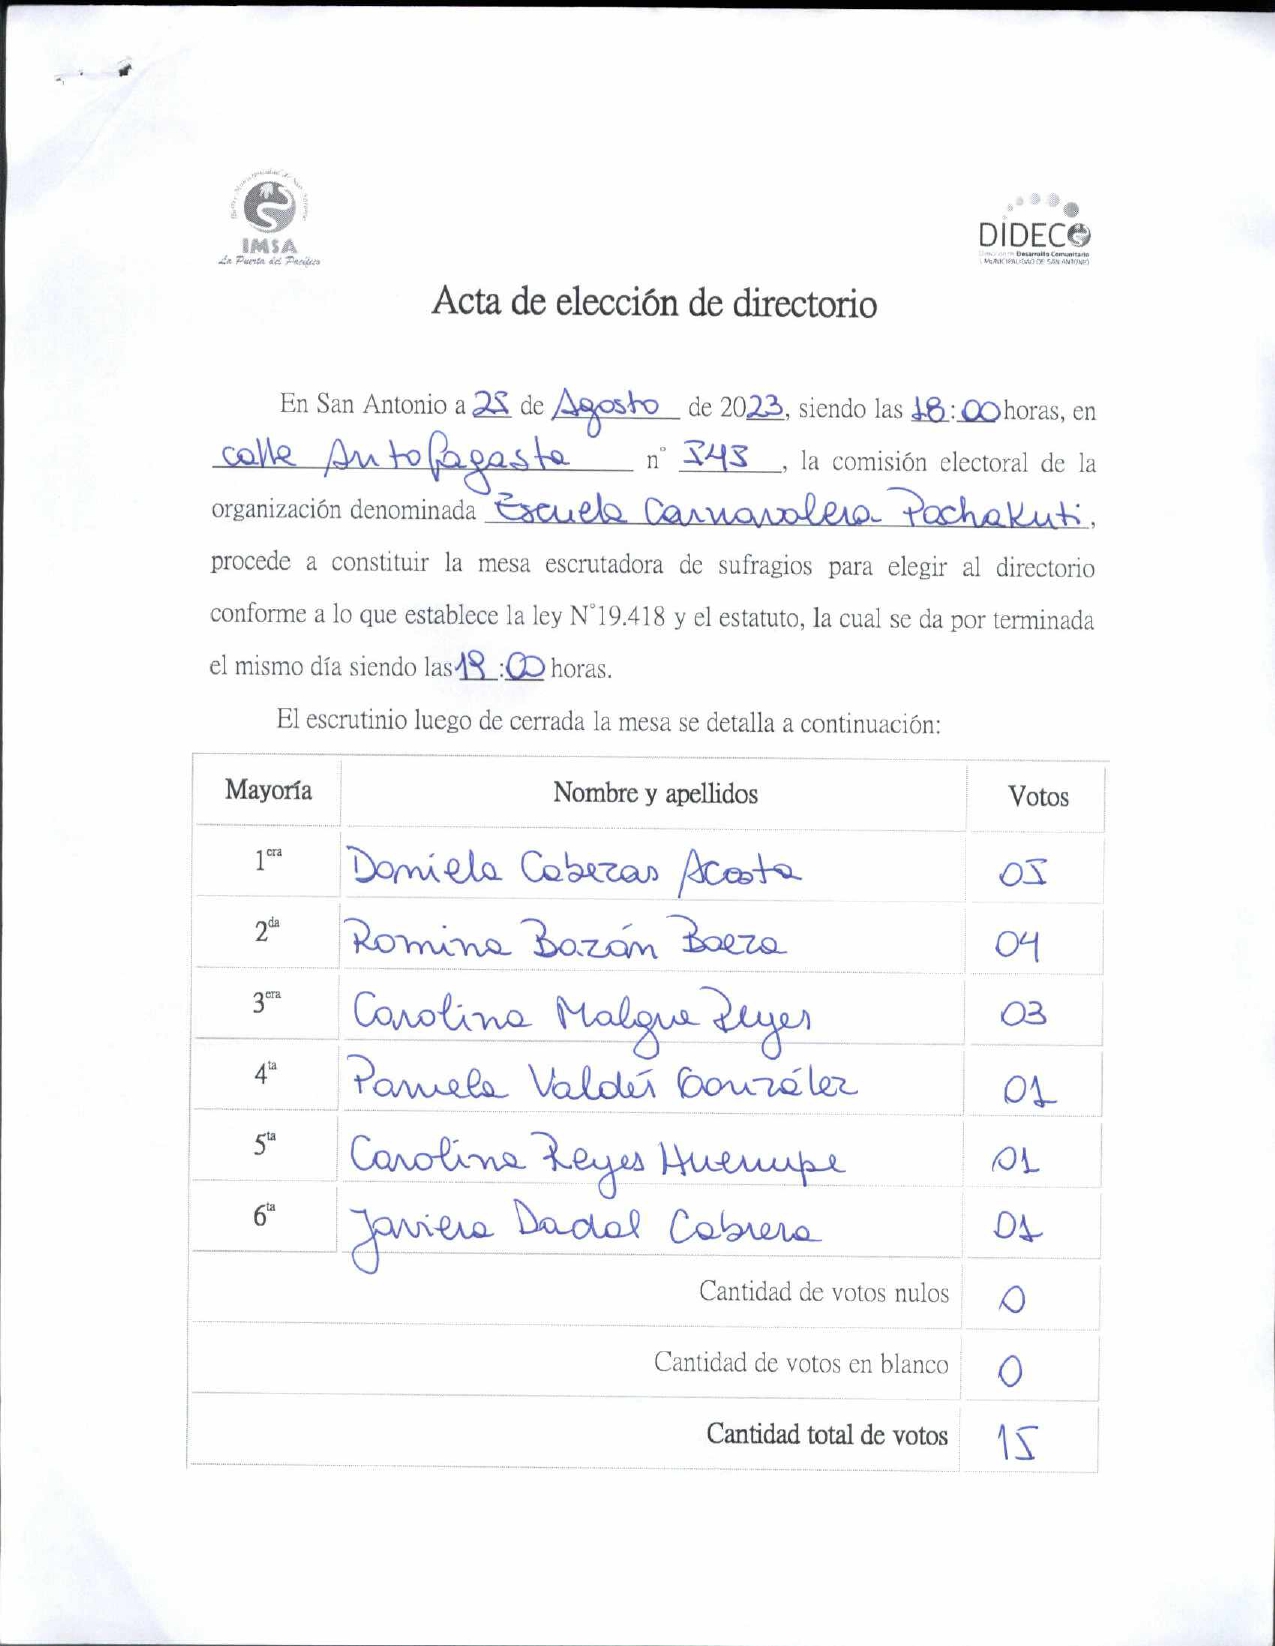 IMSA
La Puerta del Pacífico
DIDECO
Desarrollo Comunitario
Acta de elección de directorio
En San Antonio a 25 de Agosto de 2023, siendo las 18:00 horas, en
calle Antofagasta n° 343, la comisión electoral de la
organización denominada Escuela Carnavalera Pachakuti,
procede a constituir la mesa escrutadora de sufragios para elegir al directorio
conforme a lo que establece la ley N°19.418 y el estatuto, la cual se da por terminada
el mismo día siendo las 19:00 horas.
El escrutinio luego de cerrada la mesa se detalla a continuación:
Mayoría Nombre y apellidos Votos
1cra Daniela Cabezas Acosta 05
2da Romina Bazán Baeza 04
3era Carolina Malgue Reyes 03
4ta Pamela Valdés González 01
5ta Carolina Reyes Huenupe 01
6ta Javiera Dadal Cabrera 01
Cantidad de votos nulos 0
Cantidad de votos en blanco 0
Cantidad total de votos 15